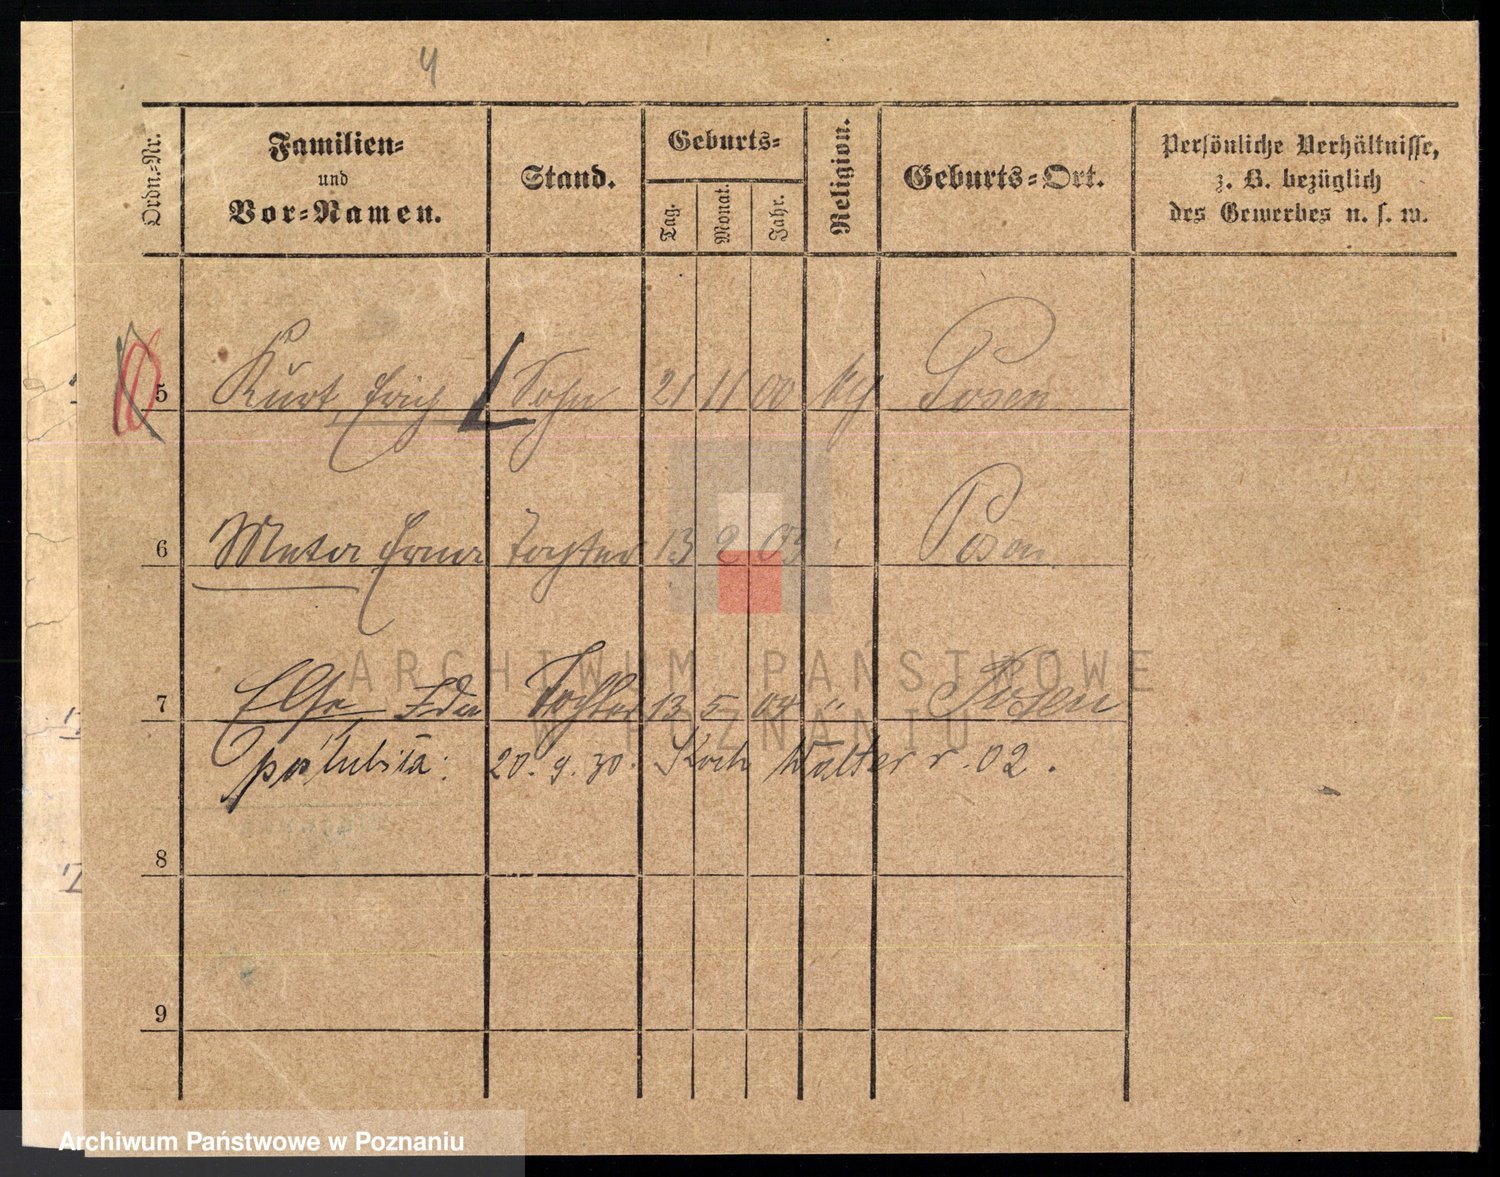 4
Ordn.-Nr.
Familien-
und
Vor-Namen.
Stand.
Geburts-
Tag.
Monat.
Jahr.
Religion.
Geburts-Ort.
Persönliche Verhältnisse,
z. B. bezüglich
des Gewerbes u. s. w.
5 Kurt Erich Sohn 21 11 00 Posen
6 Meta Erna Tochter 13 2 03 " Posen
7 Else Ida Tochter 13 5 04 " Posen
poślubiła: 20. 9. 30. Koch Walter r. 02.
8
9
ARCHIWUM PAŃSTWOWE
W POZNANIU
Archiwum Państwowe w Poznaniu